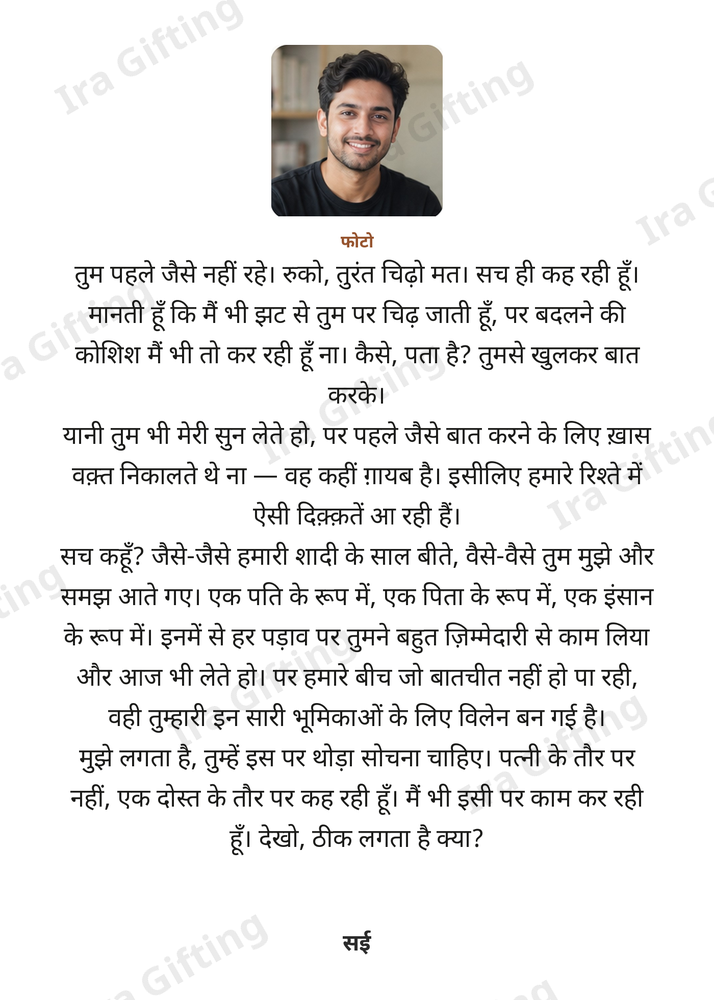 फोटो
तुम पहले जैसे नहीं रहे। रुको, तुरंत चिढ़ो मत। सच ही कह रही हूँ।
मानती हूँ कि मैं भी झट से तुम पर चिढ़ जाती हूँ, पर बदलने की
कोशिश मैं भी तो कर रही हूँ ना। कैसे, पता है? तुमसे खुलकर बात
करके।
यानी तुम भी मेरी सुन लेते हो, पर पहले जैसे बात करने के लिए ख़ास
वक़्त निकालते थे ना — वह कहीं ग़ायब है। इसीलिए हमारे रिश्ते में
ऐसी दिक़्क़तें आ रही हैं।
सच कहूँ? जैसे-जैसे हमारी शादी के साल बीते, वैसे-वैसे तुम मुझे और
समझ आते गए। एक पति के रूप में, एक पिता के रूप में, एक इंसान
के रूप में। इनमें से हर पड़ाव पर तुमने बहुत ज़िम्मेदारी से काम लिया
और आज भी लेते हो। पर हमारे बीच जो बातचीत नहीं हो पा रही,
वही तुम्हारी इन सारी भूमिकाओं के लिए विलेन बन गई है।
मुझे लगता है, तुम्हें इस पर थोड़ा सोचना चाहिए। पत्नी के तौर पर
नहीं, एक दोस्त के तौर पर कह रही हूँ। मैं भी इसी पर काम कर रही
हूँ। देखो, ठीक लगता है क्या?
सई
Ira Gifting
Ira Gifting
Ira Gifting
Ira Gifting
Ira Gifting
Ira Gifting
Ira Gifting
Ira Gifting
Ira Gifting